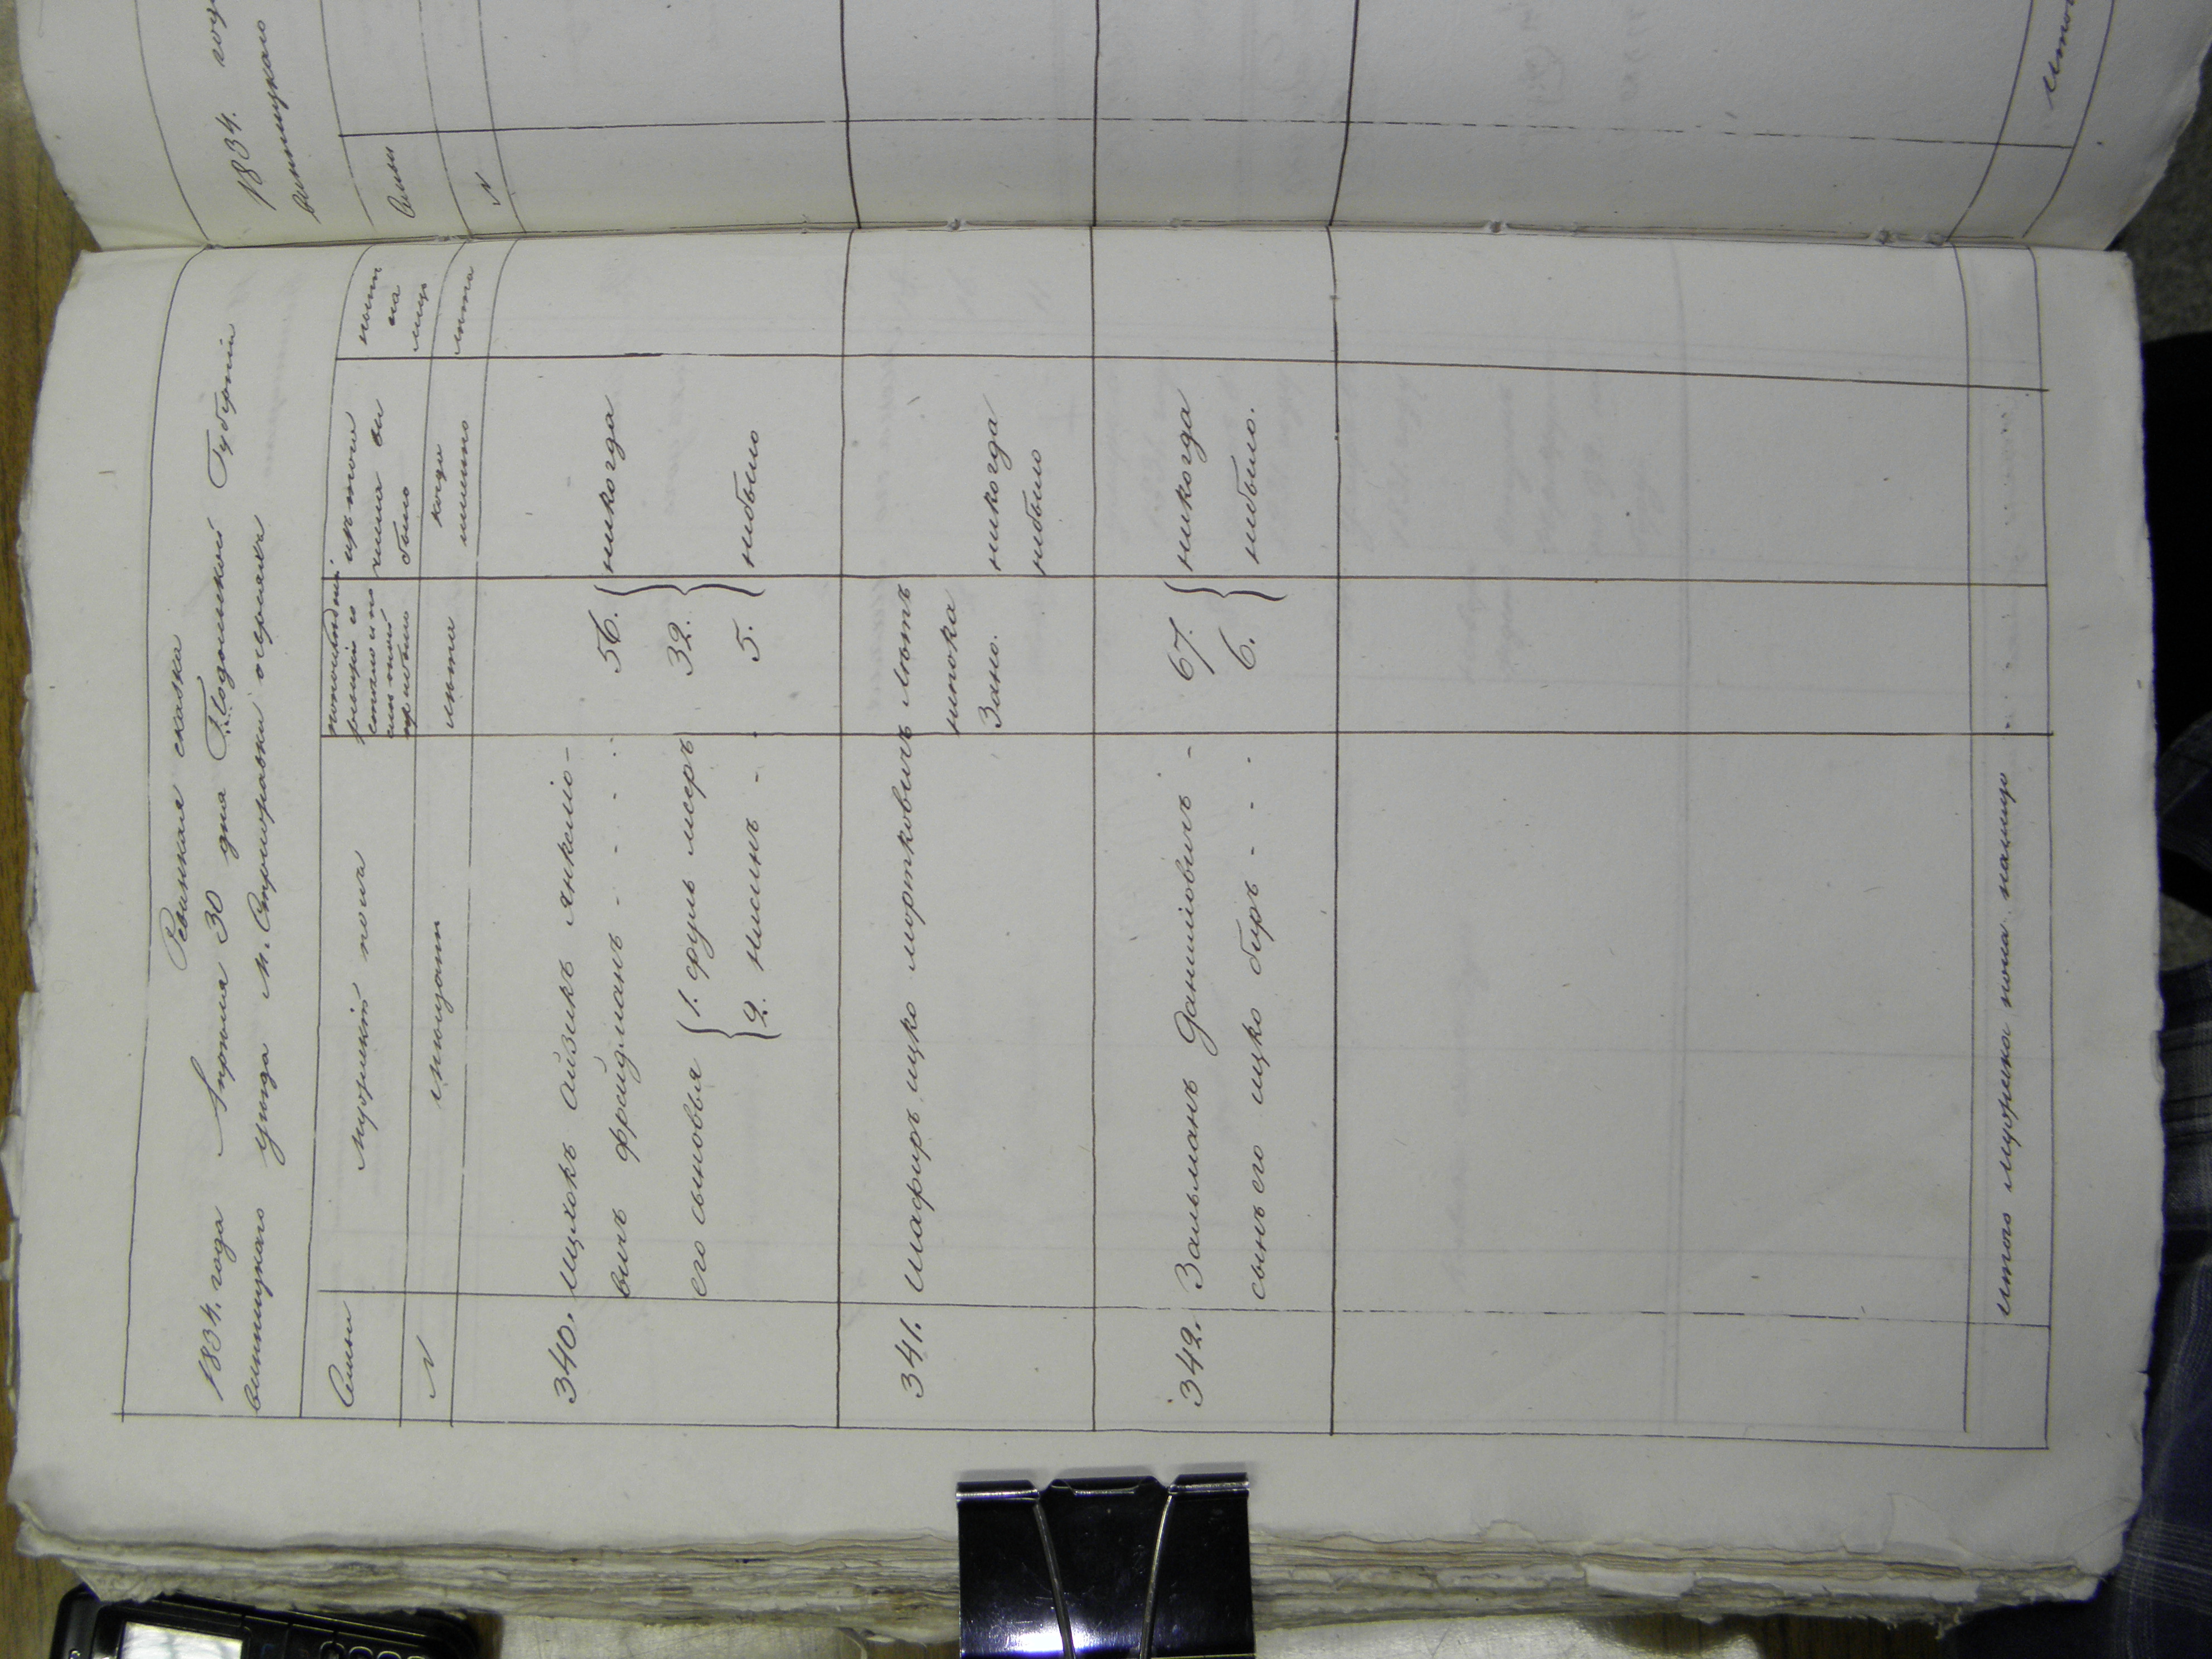 Ревижская сказка
1834. года Апреля 30 дня Подольской Губернiи
винницкаго уезда м. Стрижавки о евреяхъ
Семьи
мужескiй полъ
по последней ревизiи состояло и после оной прибыло
изъ того числа вы было
ныне на лицо
N
мещане
лета
когда именно
лета
340. ицхокъ айзикъ янкелiо-
вичъ фрейдманъ - - - - 56. никогда
его сыновья 1. фуль мееръ 32.
2. нисинъ - - 5. небыло
341. шафиръ ицко мортковичъ летъ
непока
зано.
никогда
небыло
342. Зальманъ Данилiовичъ - 67. никогда
сынъ его ицко беръ - - - 6. небыло.
итого мужеска пола налицо
1834. года
винницкаго
Семьи
N
итого